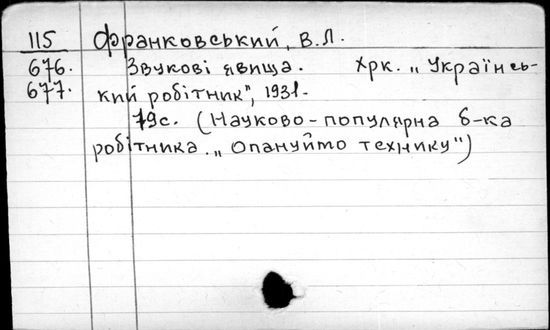 115 Франковський, В.Л.
676. Звукові явища. Хрк. „Українсь-
677. кий робітник", 1931.
79с. (Науково-популярна б-ка
робітника. „Опануйто технику")